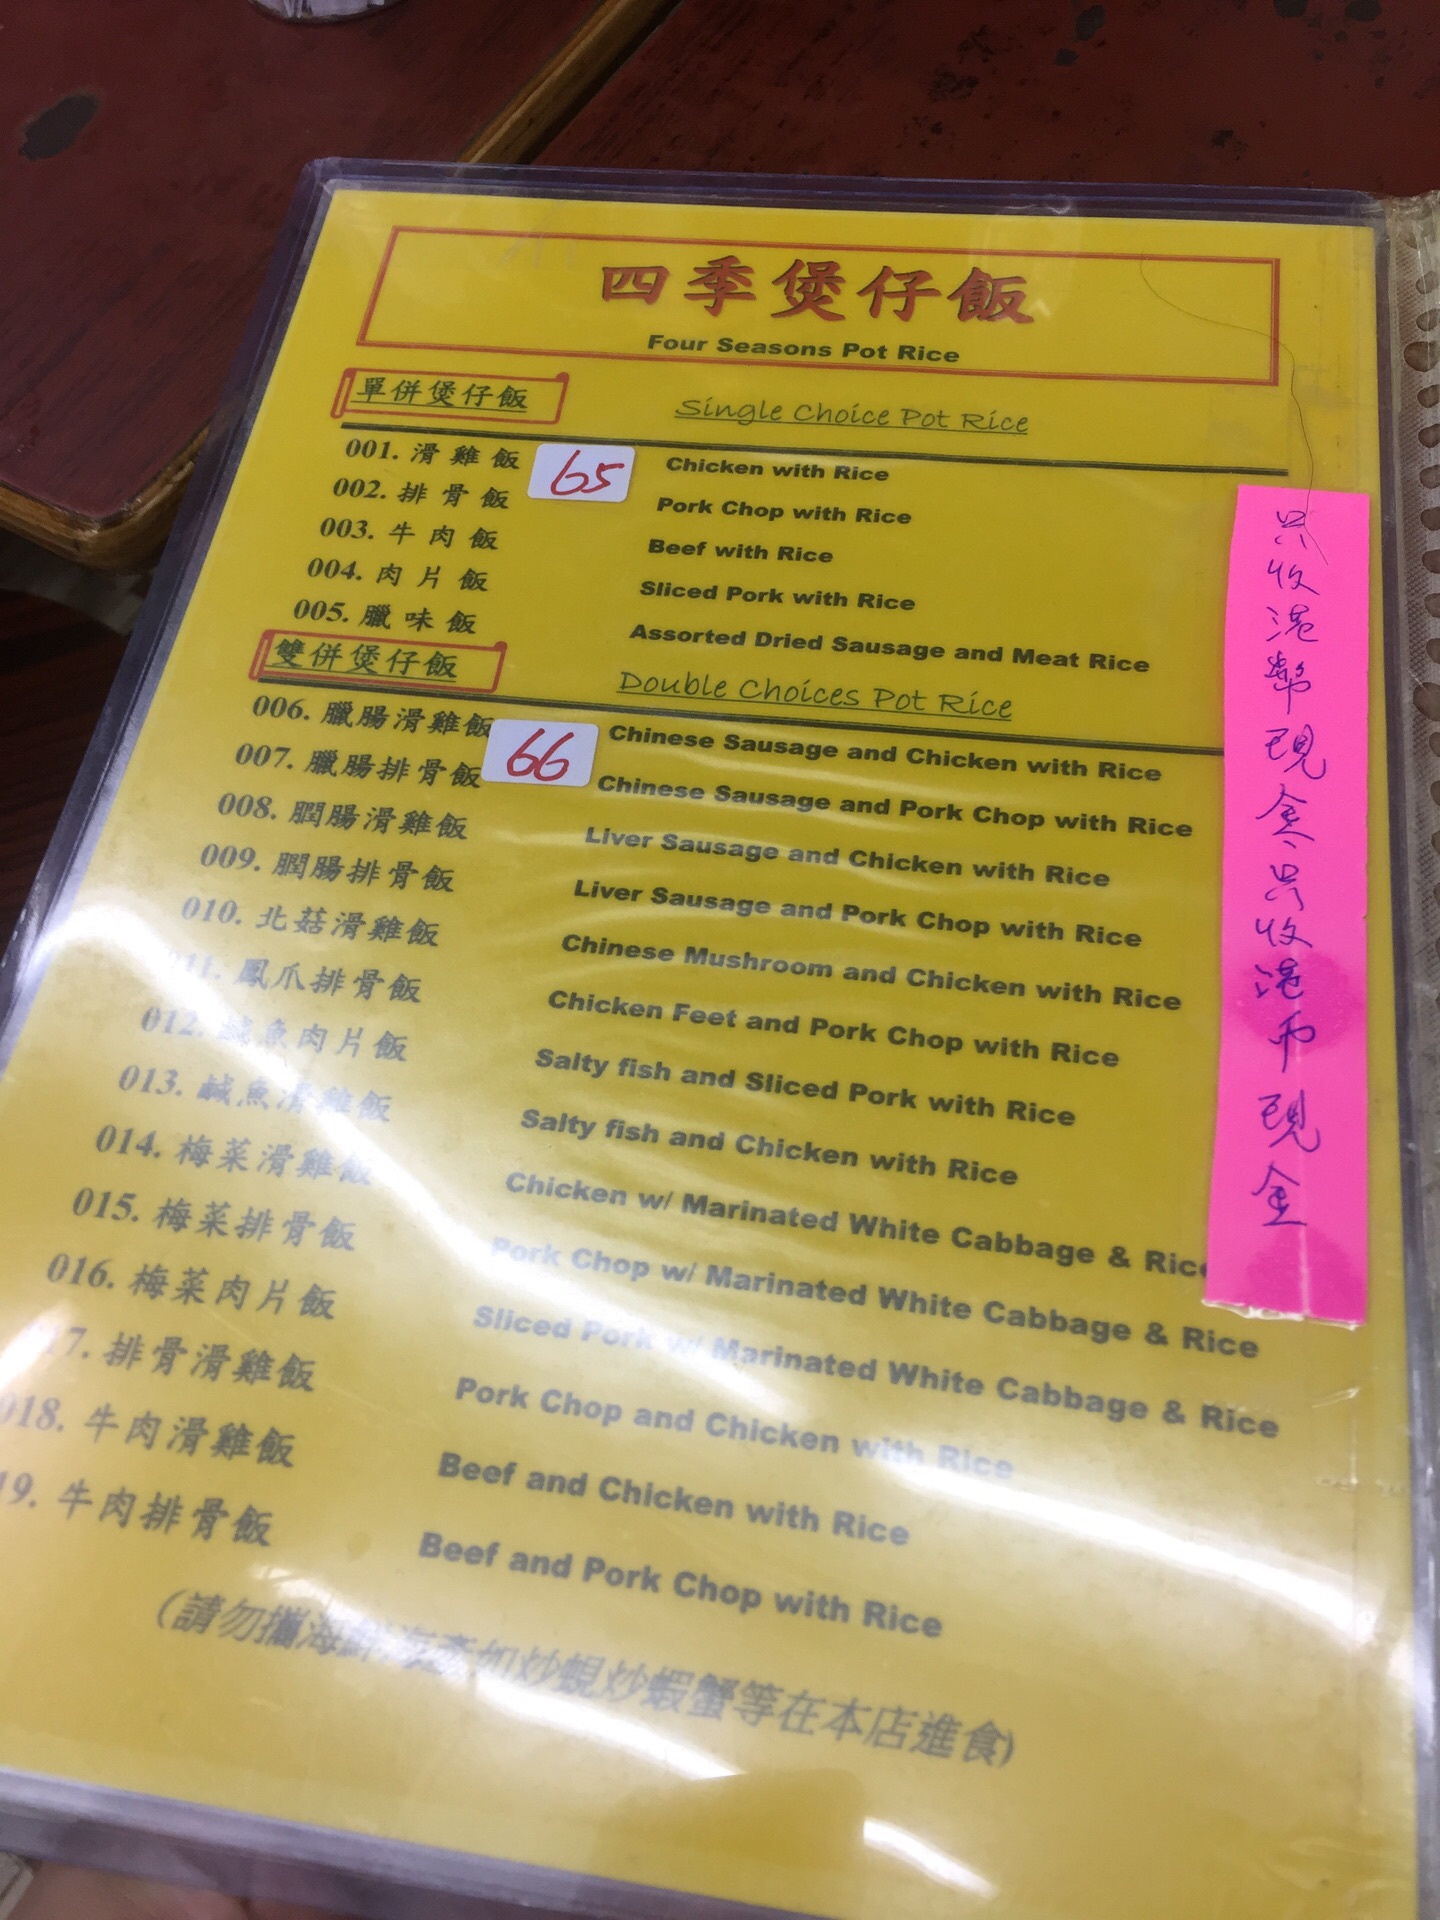 四季煲仔飯
Four Seasons Pot Rice
單併煲仔飯 Single Choice Pot Rice
001. 滑雞飯 65 Chicken with Rice
002. 排骨飯 Pork Chop with Rice
003. 牛肉飯 Beef with Rice
004. 肉片飯 Sliced Pork with Rice
005. 臘味飯 Assorted Dried Sausage and Meat Rice
雙併煲仔飯 Double Choices Pot Rice
006. 臘腸滑雞飯 66 Chinese Sausage and Chicken with Rice
007. 臘腸排骨飯 Chinese Sausage and Pork Chop with Rice
008. 膶腸滑雞飯 Liver Sausage and Chicken with Rice
009. 膶腸排骨飯 Liver Sausage and Pork Chop with Rice
010. 北菇滑雞飯 Chinese Mushroom and Chicken with Rice
11. 鳳爪排骨飯 Chicken Feet and Pork Chop with Rice
012. 鹹魚肉片飯 Salty fish and Sliced Pork with Rice
013. 鹹魚滑雞飯 Salty fish and Chicken with Rice
014. 梅菜滑雞飯 Chicken w/ Marinated White Cabbage & Rice
015. 梅菜排骨飯 Pork Chop w/ Marinated White Cabbage & Rice
016. 梅菜肉片飯 Sliced Pork w/ Marinated White Cabbage & Rice
17. 排骨滑雞飯 Pork Chop and Chicken with Rice
018. 牛肉滑雞飯 Beef and Chicken with Rice
19. 牛肉排骨飯 Beef and Pork Chop with Rice
(請勿攜海鮮海產如炒蜆炒蝦蟹等在本店進食)
只收港幣現金只收港币現金